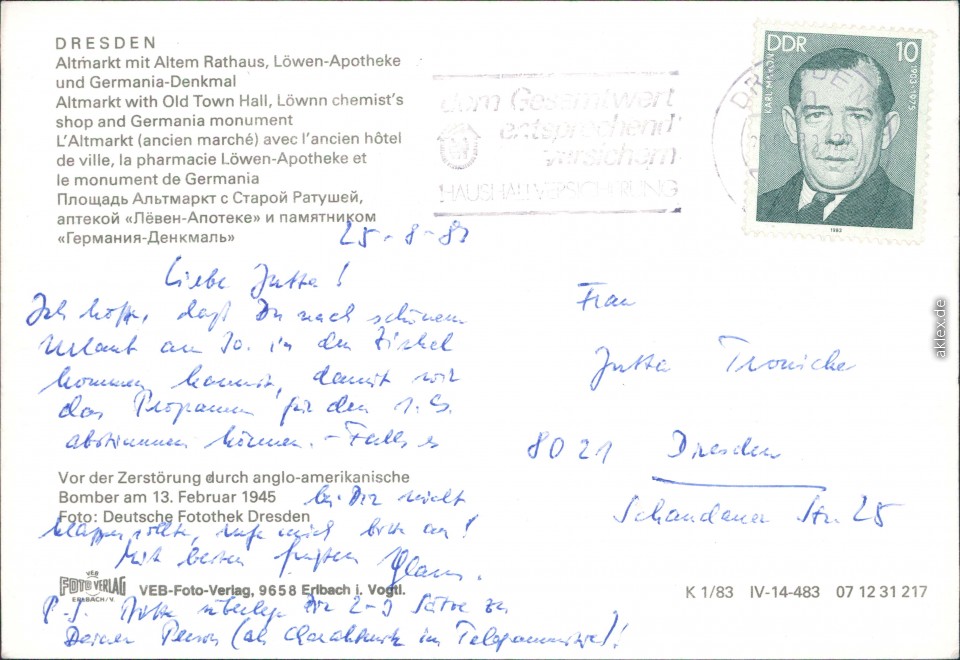 DRESDEN
Altmarkt mit Altem Rathaus, Löwen-Apotheke
und Germania-Denkmal
Altmarkt with Old Town Hall, Löwnn chemist's
shop and Germania monument
L'Altmarkt (ancien marché) avec l'ancien hôtel
de ville, la pharmacie Löwen-Apotheke et
le monument de Germania
Площадь Альтмаркт с Старой Ратушей,
аптекой «Лёвен-Апотеке» и памятником
«Германия-Денкмаль»
dem Gesamtwert
entsprechend
versichern
HAUSHALTVERSICHERUNG
DRESDEN
DDR 10
KARL MARON 1903-1975
1983
25-8-83
Liebe Jutta!
Ich hoffe, daß Du nach schönem
Urlaub am 30. in den Zirkel
kommen kannst, damit wir
das Programm für den 1.9.
abstimmen können. – Falls es
Vor der Zerstörung durch anglo-amerikanische
Bomber am 13. Februar 1945
bei Dir nicht
Foto: Deutsche Fotothek Dresden
klappen sollte, rufe mich bitte an!
Mit besten Grüßen
Klaus.
VEB
FOTO VERLAG
ERLBACH/V.
VEB-Foto-Verlag, 9658 Erlbach i. Vogtl.
K 1/83 IV-14-483 07 12 31 217
P.S. Bitte überlege Dir 2-3 Sätze zu
Deiner Person (als im
Frau
Jutta Tronicke
8021 Dresden
Schandauer Str. 25
aklex.de